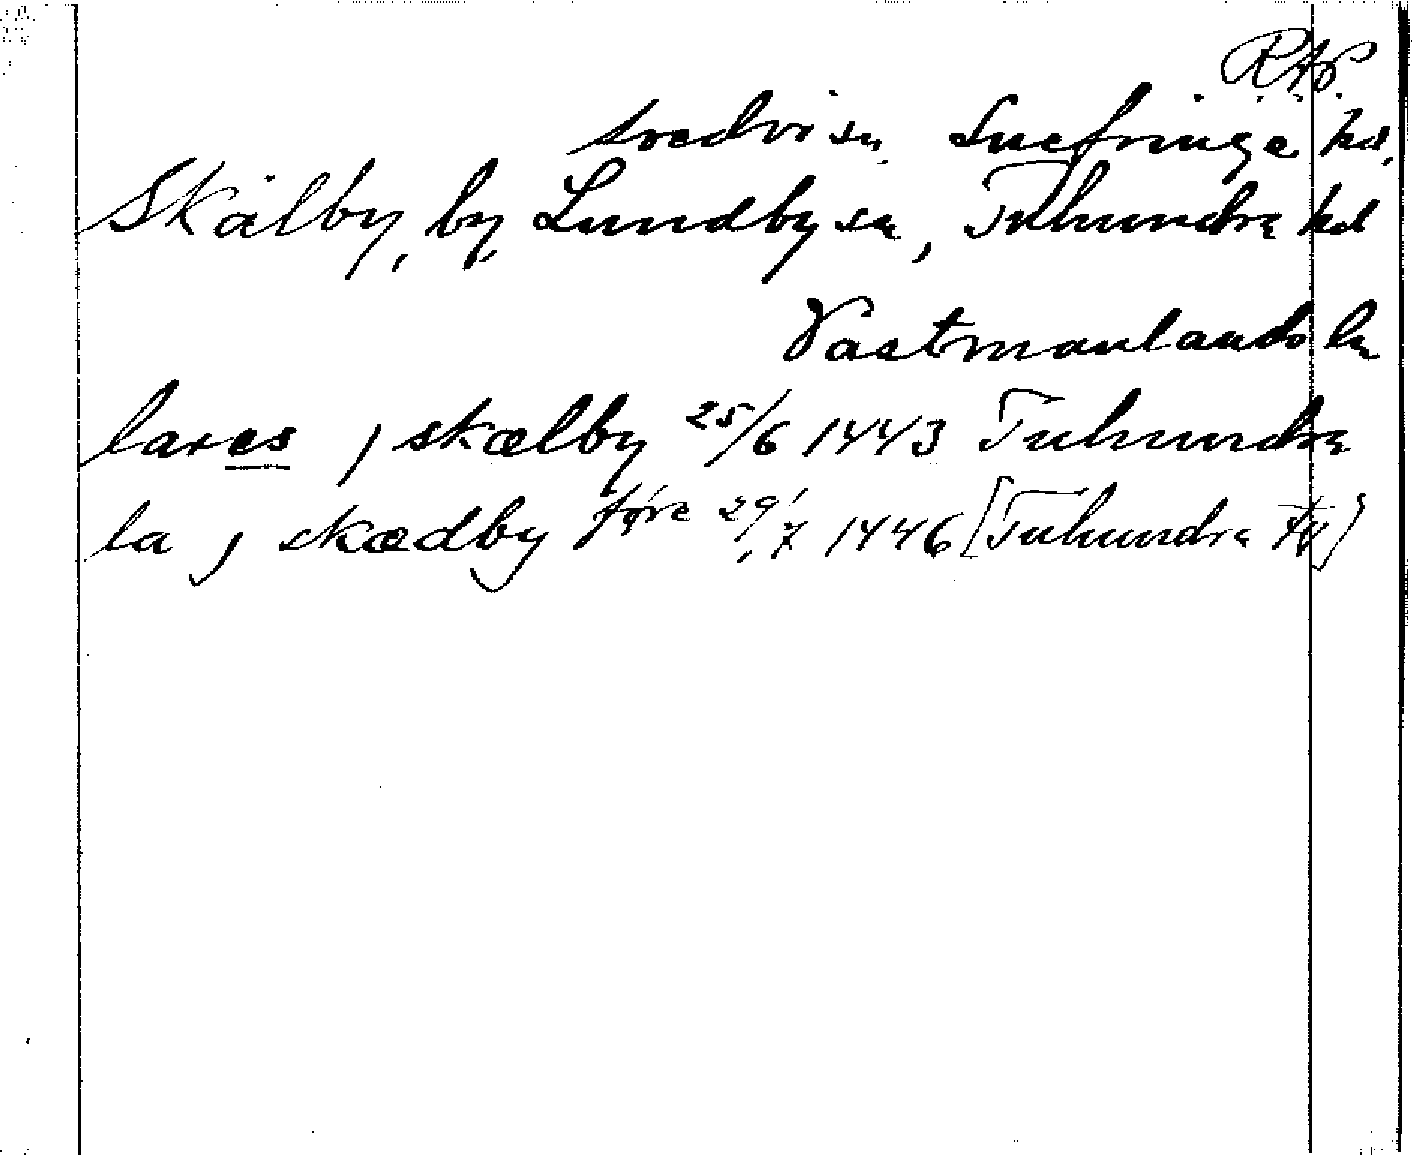 R.A.P.
svedvi sn Snefringe hd.
Skälby, by, Lundby sn, Tuhundra hd
Västmanlands ln
lares j skælby 25/6 1443 Tuhundra
la j skædby före 29/7 1446 [Tuhundra ty]